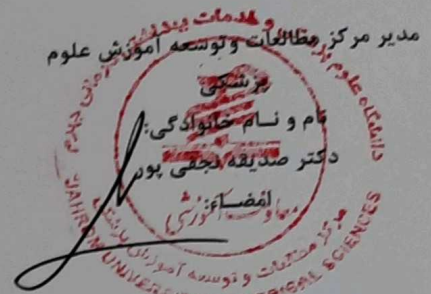 مدیر مرکز مطالعات و توسعه آموزش علوم
پزشکی
نام و نــام خانوادگی:
دکتر صدیقه نجفی پور
امضــاء:
معاونت آموزشی
مرکز مطالعات و توسعه آموزش پزشکی
دانشگاه علوم پزشکی و خدمات بهداشتی درمانی جهرم
JAHROM UNIVERSITY OF MEDICAL SCIENCES